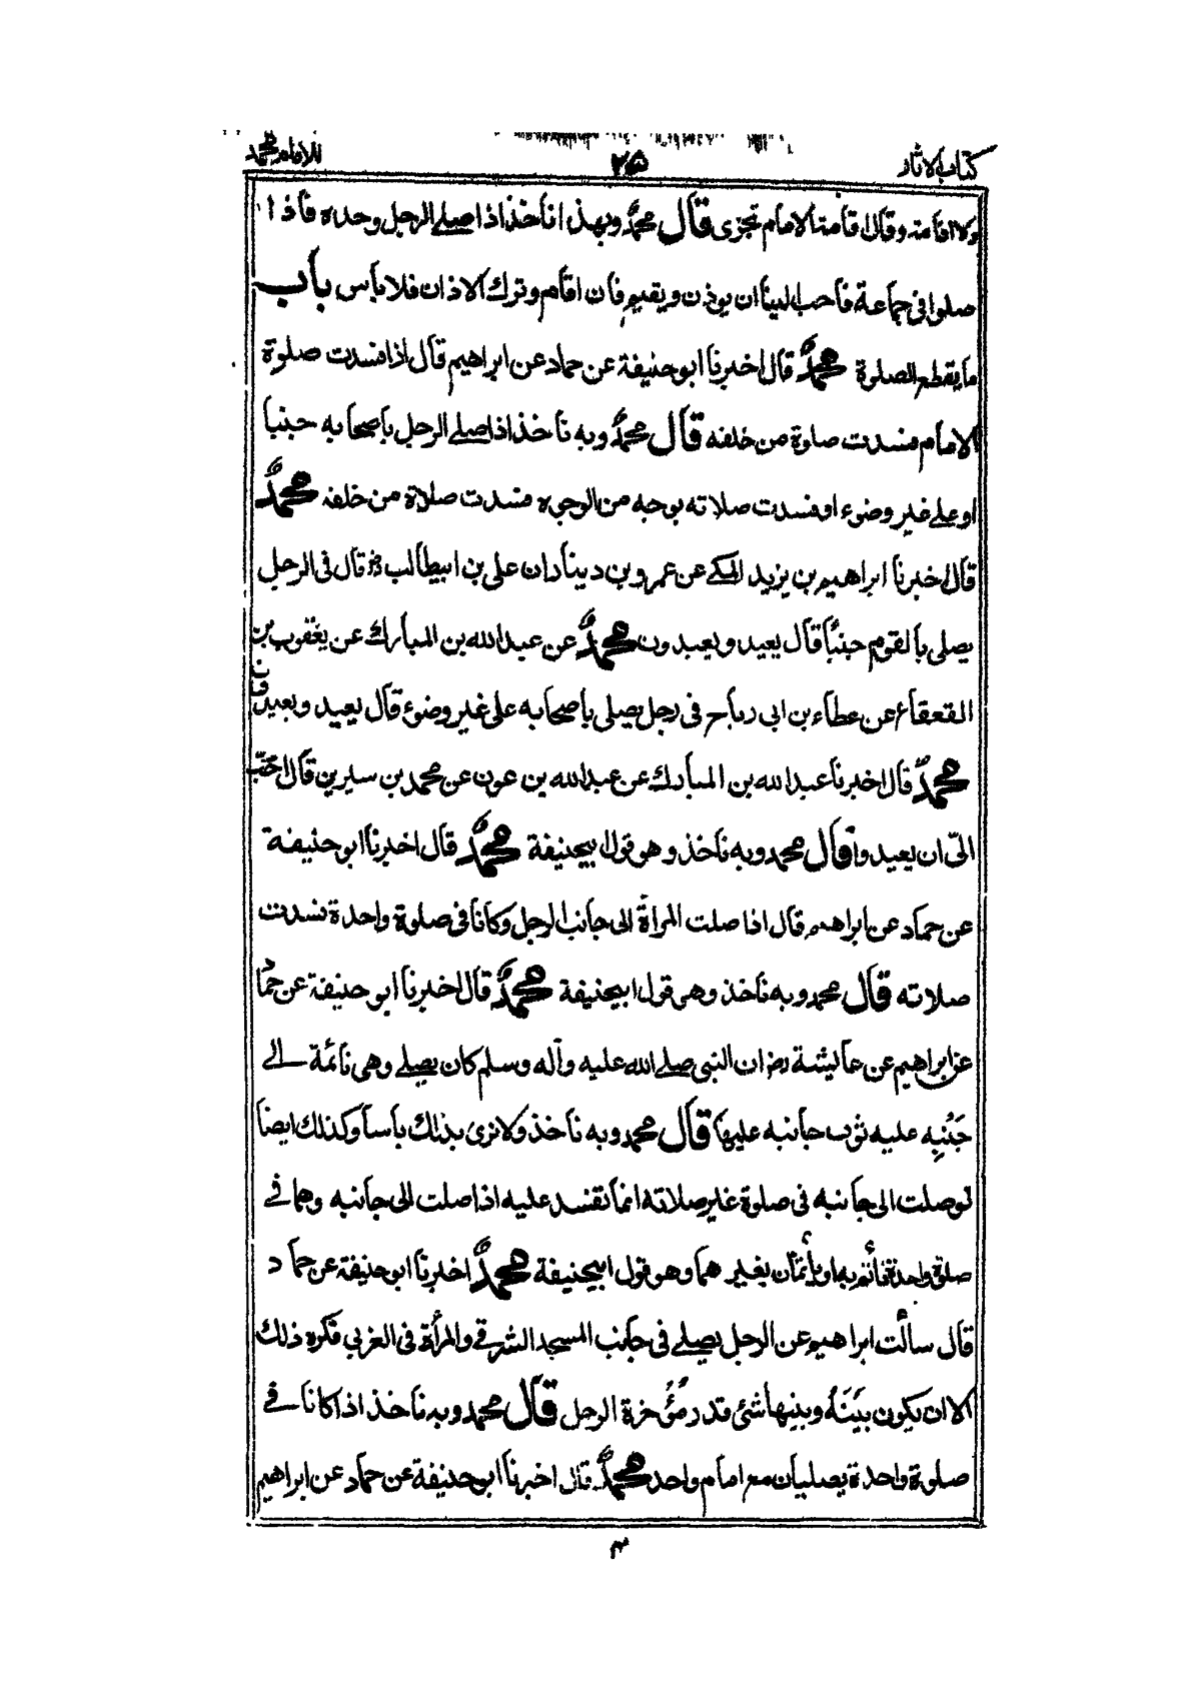 كتاب الاثار ٢٥ للامام محمد
ولا اقامة وقال اقامة الامام تجزى قال محمد وبهذا ناخذ اذا صلے الرجل وحده فاذا
صلوا فى جماعة فاحب الينا ان يوذن ويقيم فان اقام وترك الاذان فلا باس باب
ما يقطع الصلوة محمد قال اخبرنا ابو حنيفة عن حماد عن ابراهيم قال اذا فسدت صلوة
الامام فسدت صلوة من خلفه قال محمد وبه ناخذ اذا صلے الرجل باصحابه جنبا
او علے غير وضوء او فسدت صلاته بوجه من الوجوه فسدت صلاة من خلفه محمد
قال اخبرنا ابراهيم بن يزيد المكے عن عمرو بن دينار ان على بن ابيطالب رض قال فى الرجل
يصلى بالقوم جنبًا قال يعيد ويعيدون محمد عن عبد الله بن المبارك عن يعقوب بن
القعقاع عن عطاء بن ابى رباح فى رجل يصلى باصحابه على غير وضوء قال يعيد ويعيدون
محمد قال اخبرنا عبد الله بن المبارك عن عبد الله بن عون عن محمد بن سيرين قال احبّ
الىّ ان يعيدوا قال محمد وبه ناخذ وهو قول ابيحنيفة محمد قال اخبرنا ابو حنيفة
عن حماد عن ابراهيم قال اذا صلت المرأة الى جانب الرجل وكانا فى صلوة واحدة فسدت
صلاته قال محمد وبه ناخذ وهو قول ابيحنيفة محمد قال اخبرنا ابو حنيفة عن حماد
عن ابراهيم عن عايشة رض ان النبى صلے الله عليه وآله وسلم كان يصلے وهى نائمة الے
جَنْبِه عليه ثوب جانبه عليها قال محمد وبه ناخذ ولا نرى بذلك باسا وكذلك ايضا
لو صلت الى جانبه فى صلوة غير صلاته انما تفسد عليه اذا صلت الى جانبه وهما فے
صلوة واحدة تأتم به او يأتمان بغيرهما وهو قول ابيحنيفة محمد اخبرنا ابو حنيفة عن حماد
قال سالت ابراهيم عن الرجل يصلے فى جانب المسجد الشرقے والمرأة فى الغربى فكره ذلك
الا ان يكون بَيْنَهُ وبينها شئ قدر مُؤْخرة الرحل قال محمد وبه ناخذ اذا كانا فے
صلوة واحدة يصليان مع امام واحد محمد قال اخبرنا ابو حنيفة عن حماد عن ابراهيم